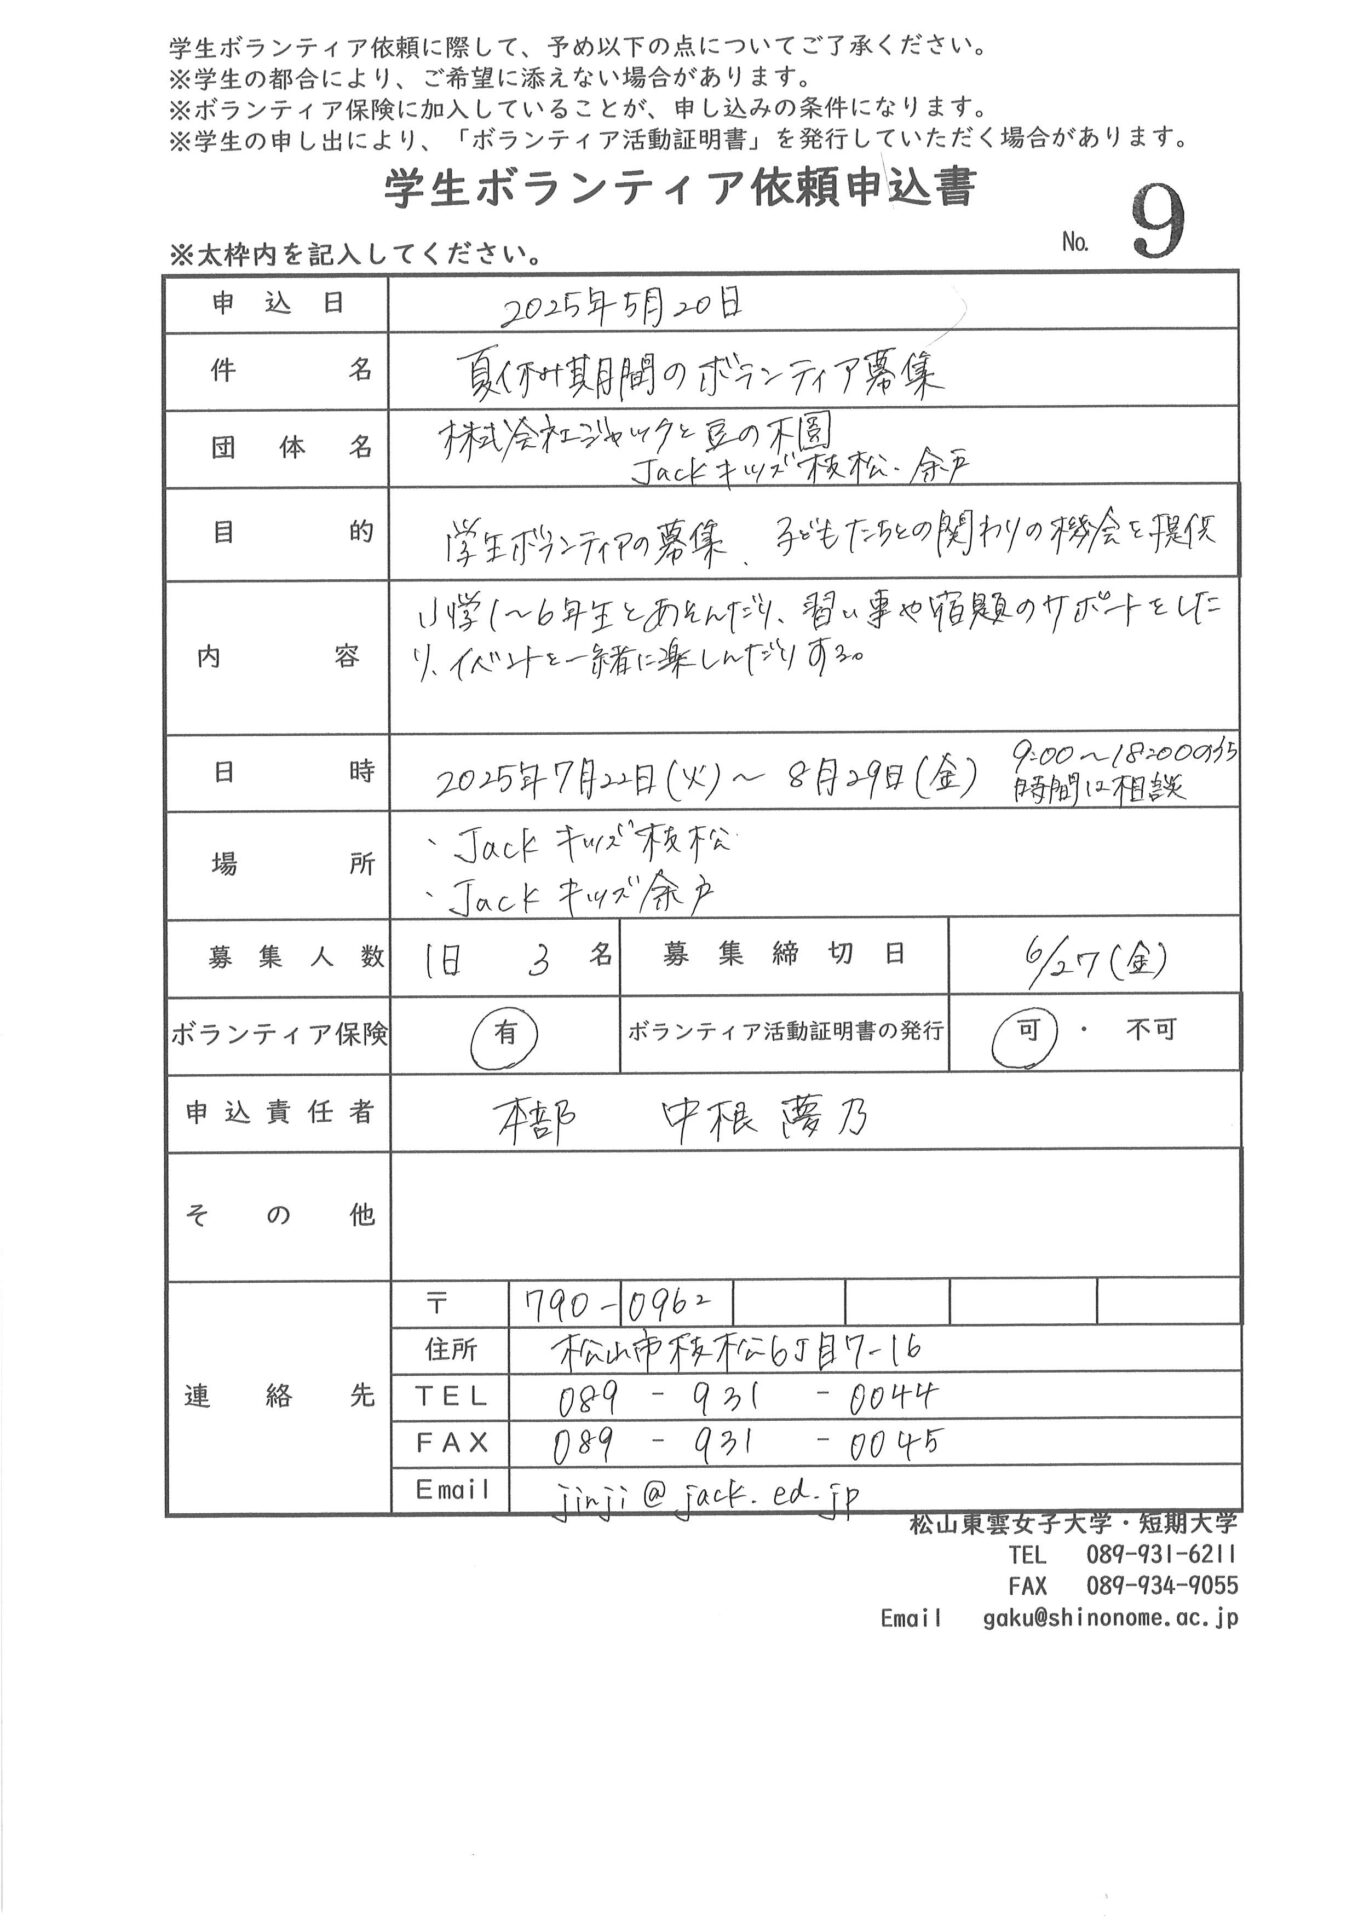 学生ボランティア依頼に際して、予め以下の点についてご了承ください。
※学生の都合により、ご希望に添えない場合があります。
※ボランティア保険に加入していることが、申し込みの条件になります。
※学生の申し出により、「ボランティア活動証明書」を発行していただく場合があります。
学生ボランティア依頼申込書
No. 9
※太枠内を記入してください。
申込日 2025年5月20日
件名 夏休み期間のボランティア募集
団体名 株式会社ジャックと豆の木園
Jackキッズ枝松・余戸
目的 学生ボランティアの募集、子どもたちとの関わりの機会を提供
内容 小学1〜6年生とあそんだり、習い事や宿題のサポートをした
り、イベントを一緒に楽しんだりする。
日時 2025年7月22日(火)〜8月29日(金) 9:00〜18:00のうち
時間は相談
場所 ・Jackキッズ枝松
・Jackキッズ余戸
募集人数 1日 3名 募集締切日 6/27(金)
ボランティア保険 有 ボランティア活動証明書の発行 可・不可
申込責任者 本部 中根夢乃
その他
連絡先 〒 790-0962
住所 松山市枝松6丁目7-16
TEL 089-931-0044
FAX 089-931-0045
Email jinji@jack.ed.jp
松山東雲女子大学・短期大学
TEL 089-931-6211
FAX 089-934-9055
Email gaku@shinonome.ac.jp